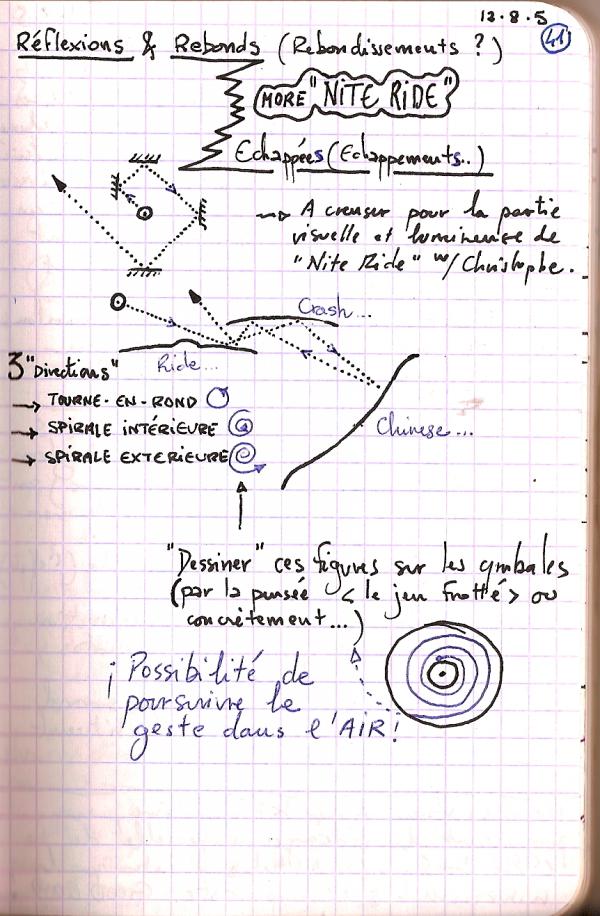 12.8.5
41
Réflexions & Rebonds (Rebondissements ?)
MORE "NITE RIDE"
Echappées (Echappements..)
→ A creuser pour la partie
visuelle et lumineuse de
"Nite Ride" w/Christophe.
Crash...
Ride...
Chinese...
3 "Directions"
→ TOURNE-EN-ROND
→ SPIRALE INTÉRIEURE
→ SPIRALE EXTERIEURE
"Dessiner" ces figures sur les cymbales
(par la pensée < le jeu frotté > ou
concrètement...)
¡ Possibilité de
poursuivre le
geste dans l'AIR!